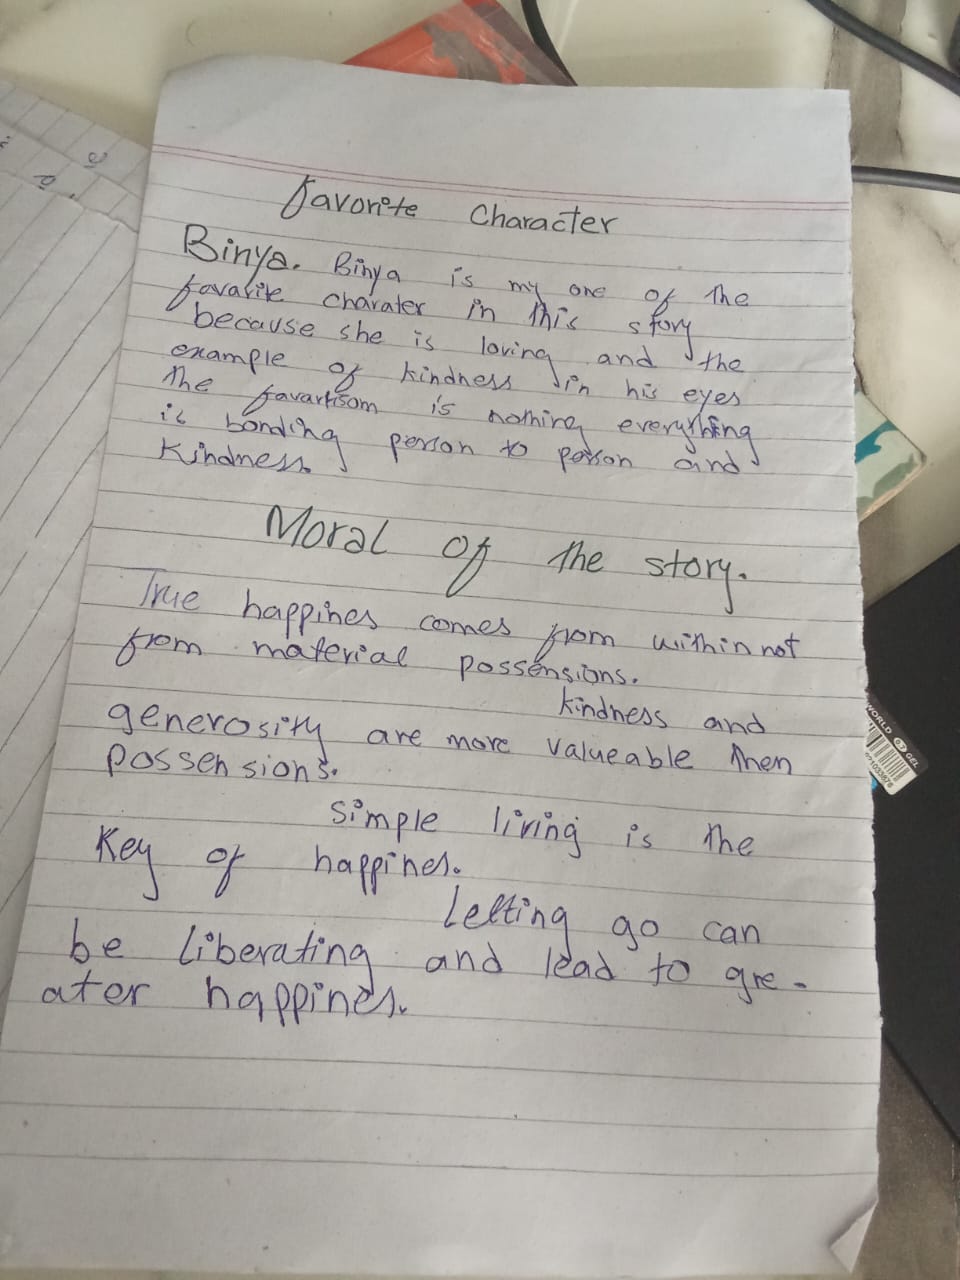 favorite character
Binya. Binya is my one of the
favarite charater in this story
because she is loving and the
example of kindness in his eyes
The favartisom is nothing everything
is bonding person to person and
Kindness.
Moral of the story.
True happines comes from within not
from material possensions.
kindness and
generosity are more valueable then
possensions.
simple living is the
Key of happines.
Letting go can
be liberating and lead to gre-
ater happines.
WORLD OF GEL